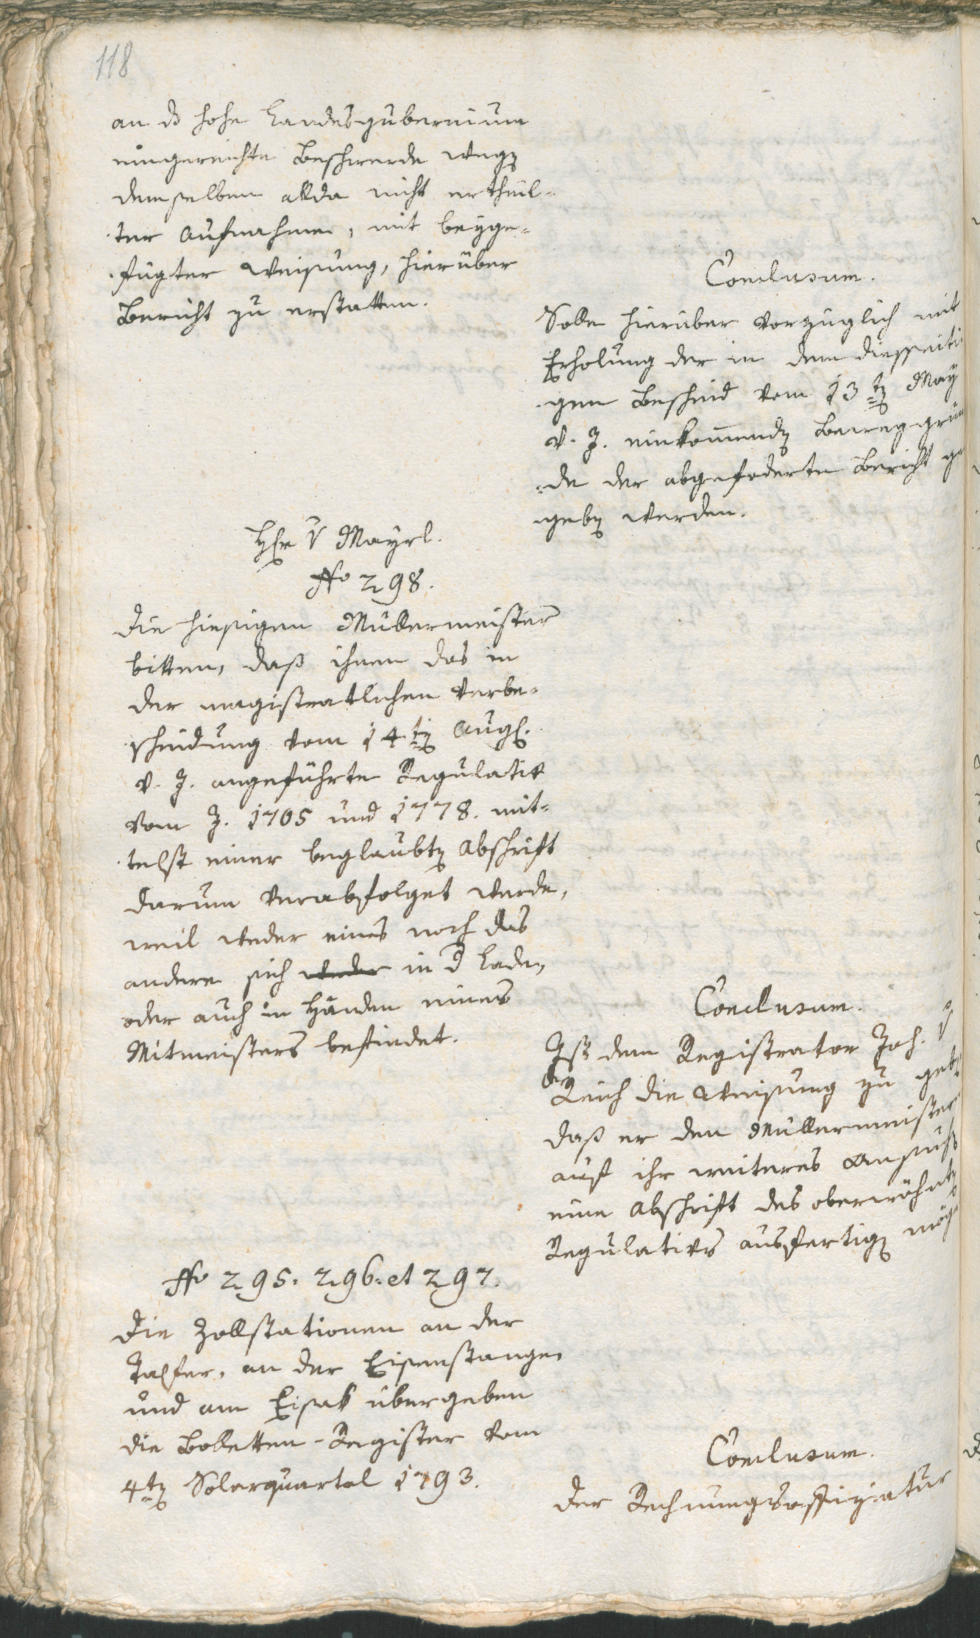 118
an d hohe Landesgubernium
eingereichte Beschwerde wegẽ
demselben allda nicht ertheil-
ter Aufnahme, mit beyge-
fügter Weisung, hierüber
Bericht zu erstatten.
Conclusum.
Solle hierüber vorzüglich mit
Erholung der in dem diesseiti-
gen Bescheid vom 13tẽ May
v. J. einkommendẽ Beweggrün
de der abgefoderte Bericht ge
gebẽ werden.
Hr v Mayrl.
No 298.
Die hiesigen Müllermeister
bitten, daß ihnen das in
der magistratlichen Verbe-
scheidung vom 14tẽ Augst.
v. J. angeführte Regulativ
vom J. 1705 und 1778. mit-
telst einer beglaubtẽ Abschrift
darum verabfolget werde,
weil weder eines noch das
andere sich weder in d Lade,
oder auch in Händen eines
Mitmeisters befindet.
Conclusum.
Ist dem Registrator Joh. v
Reich die Weisung zu gebẽ
daß er den Müllermeister
auf ihr weiteres Ansuchẽ
eine Abschrift des oberwöhntẽ
Regulativs ausfertigẽ möge
No 295. 296. et 297.
Die Zollstationen an der
Talfer, an der Eisenstangen
und am Eisak übergeben
die Bolletten-Register vom
4tẽ Solarquartal 1793.
Conclusum.
Der Rechnungsoffiziatur